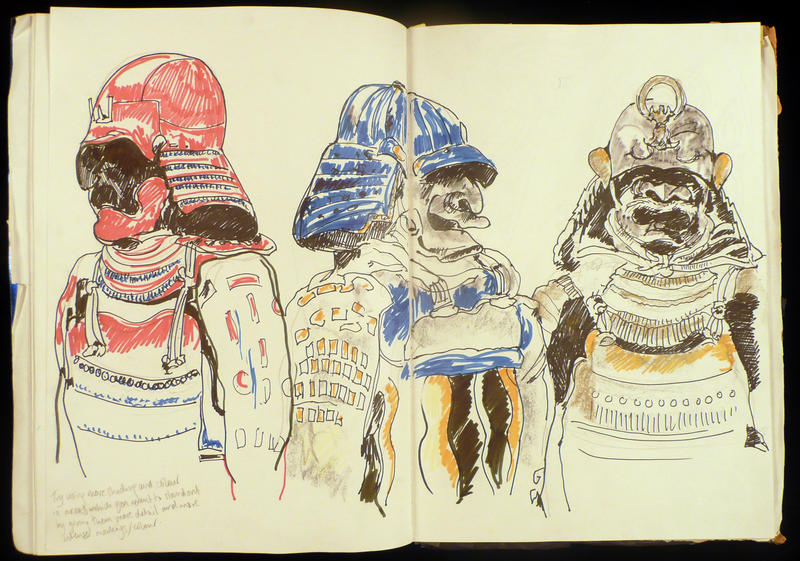 Try using more shading and colour
in areas which you want to stand out
by giving them more detail and more
intense markings/colour.